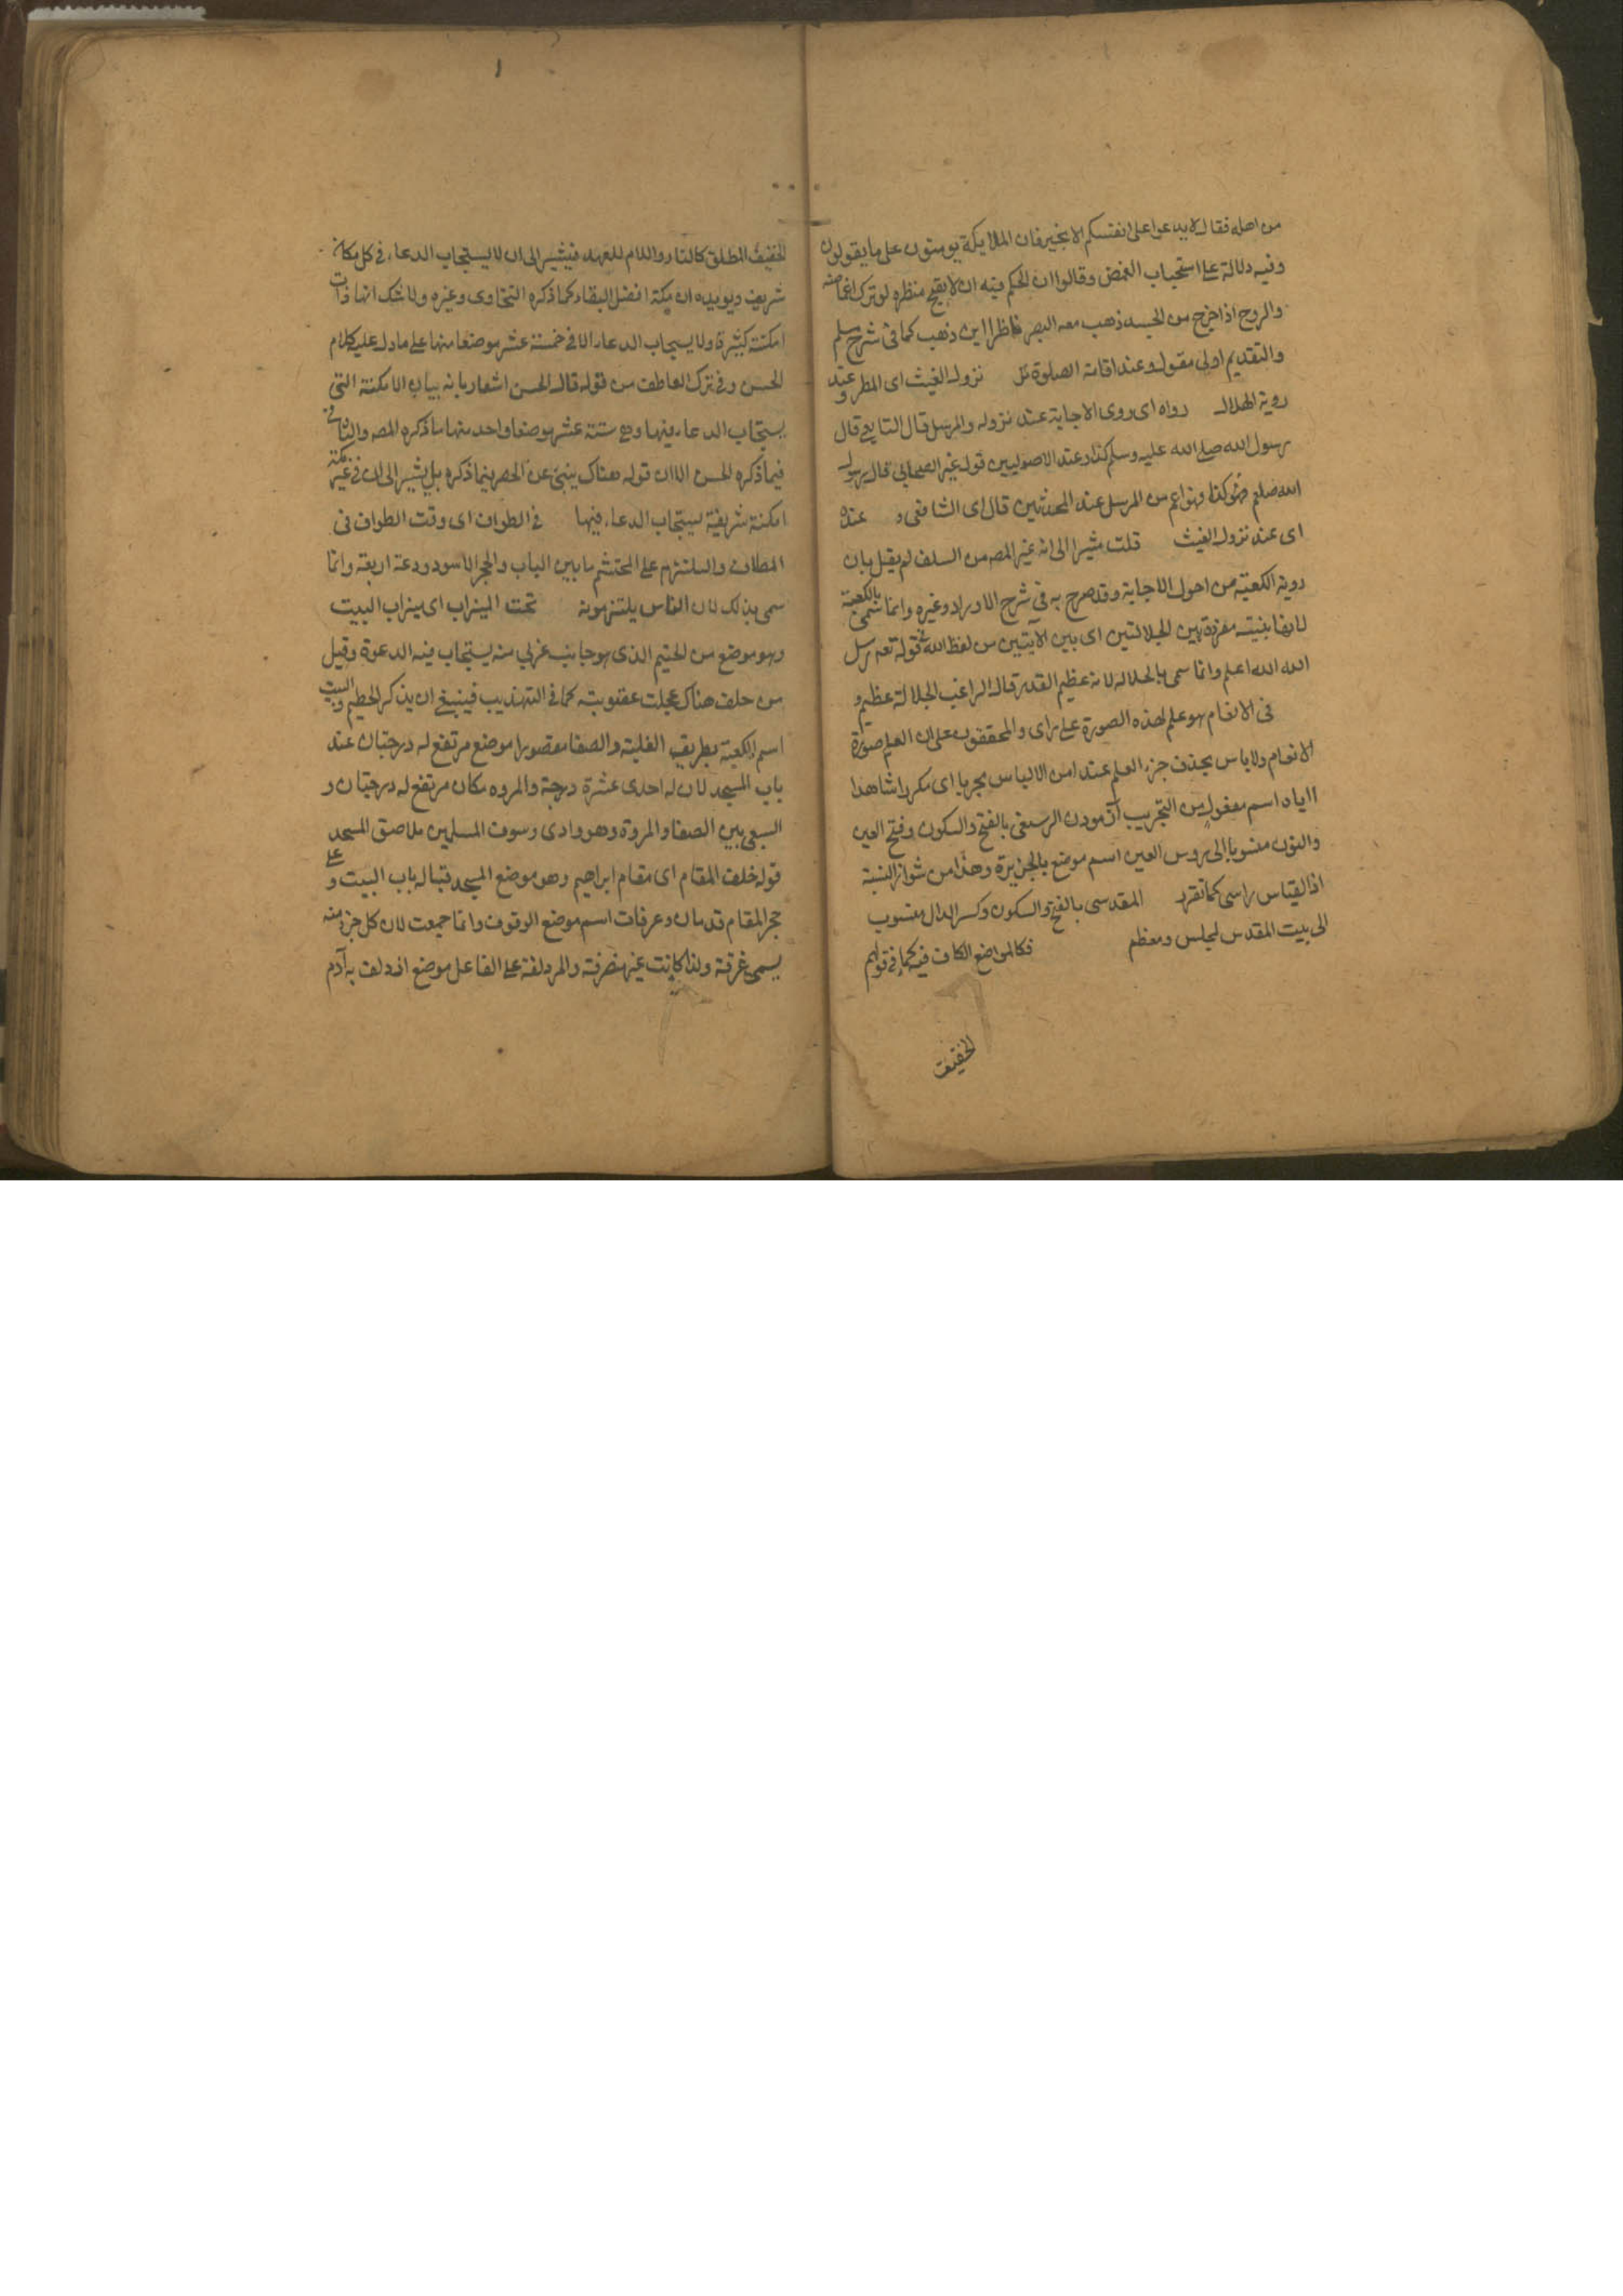 من اهله فقال لا يدعوا على انفسكم الا بخير فان الملايكة يومنون على ما يقولون
وفيه دلالة على استحباب الغمض وقالوا ان الحكم فيه ان لا يقبح منظره لو ترك اغماضه
والروح اذا خرج من الجسد ذهب معه البصر ناظرا اين ذهب كما فى شرح مسلم
والتقديم اولى مقول وعند اقامة الصلوة نزول الغيث اى المطر وعند
روية الهلال رواه اى روى الاجابة عند نزوله والمرسل قال التابعى قال
رسول الله صلى الله عليه وسلم كذا وعند الاصوليين قول غير الصحابى قال رسول
الله صلعم كذا فهو اعم من المرسل عند المحدثين قال اى الشافعى و عنده
اى عند نزول الغيث قلت مشيرا الى انه غير المصه من السلف لم يقل بان
روية الكعبة من احول الاجابة وقد صرح به فى شرح الاوراد وغيره وانما سمى بالكعبة
لانها بنيته مفردة بين الجلالتين اى بين الآيتين من لفظ الله فى قوله تعه رسل
الله الله اعلم وانما سمى بالجلاله لانه عظيم القدر قال الراغب الجلالة عظيم و
فى الانعام هو علم لهذه الصورة على راى والمحققون على ان العلم صورة
الانعام ولا باس بحذف جزء العلم عند امن الالباس مجربا اى مكررا شاهدا
ااياه اسم مفعول من التجريب آزمودن الرسعنى بالفتح والسكون وفتح العين
والنون منسوبا الى روس العين اسم موضع بالجزيرة وهذا من شواذ النسبة
اذ القياس راسى كما تقرر المقدسى بالفتح والسكون وكسر الدال منسوب
الى بيت المقدس لمجلس ومعظم فكالمواضع الكاف فيه كما فى قولهم
الحقيقت
١
الحقيقت المطلق كالنار واللام للعهد فيشير الى ان لا يستجاب الدعاء فى كل مكان
شريف ويويده ان مكة افضل البقاع كما ذكره السخاوى وغيره ولا شك انها ذات
امكنة كثيرة ولا يستجاب الدعاء الا فى خمسة عشر موضعا منها على ما دل عليه كلام
الحسن وفى ترك العاطف من قوله قال الحسن اشعار بانه بيان الامكنة التى
يستجاب الدعاء فيها وهى ستة عشر موضعا واحد منها ما ذكره المصه والباقى
فيما ذكره الحسن الا ان قوله هناك ينبئ عن الحصر فيما ذكره بل يشير الى ان فى غير مكة
امكنة شريفة يستجاب الدعاء فيها فى الطواف اى وقت الطواف فى
المطاف والملتزم على المحتشم ما بين الباب والحجر الاسود ودعة اربعة وانما
سمى بذلك لان الناس يلتزمونه تحت الميزاب اى ميزاب البيت
وهو موضع من الحتيم الذى هو جانب غربى منه يستجاب فيه الدعوة وقيل
من حلف هناك عجلت عقوبته كما فى التهذيب فينبغى ان يذكر الحطيم والبيت
اسم الكعبة بطريق الغلبة والصفا مقصورا موضع مرتفع له درجتان عند
باب المسجد لان له احدى عشرة درجة والمروه مكان مرتفع له درجتان و
السعى بين الصفا والمروة وهو وادى وسوق المسلمين ملاصق المسجد
قوله خلف المقام اى مقام ابراهيم وهو موضع المسجد قبالة باب البيت وعلى
حجر المقام قدمان وعرفات اسم موضع الوقوف وانما جمعت لان كل جزء منه
يسمى عرفة ولذا كانت غير منصرفة والمزدلفة على الفاعل موضع ازدلف به آدم